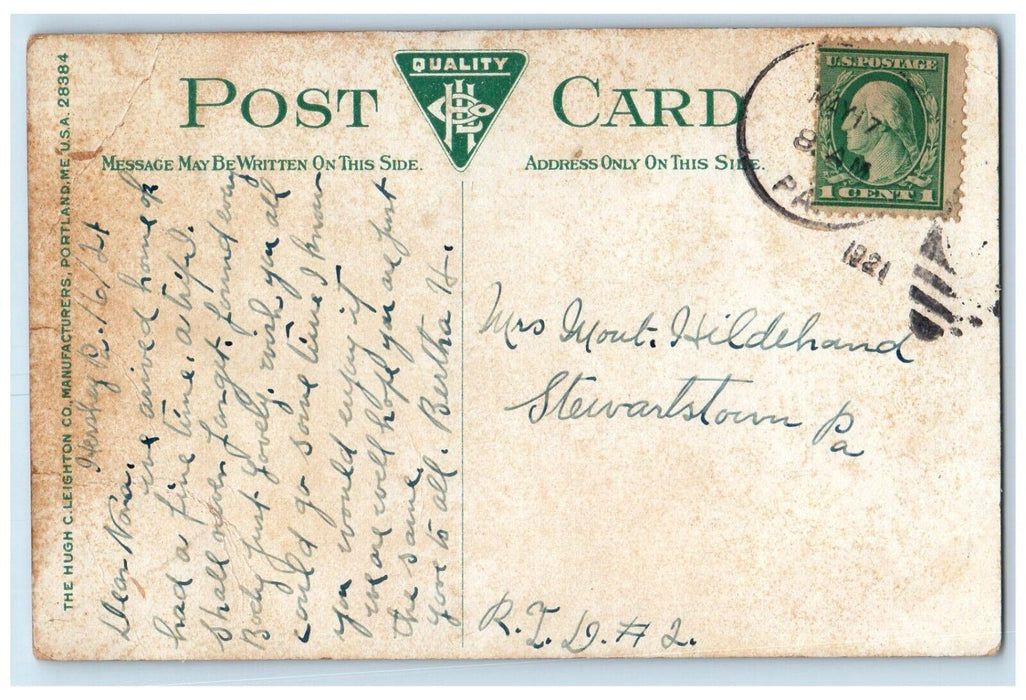 THE HUGH C. LEIGHTON CO., MANUFACTURERS, PORTLAND, ME. U.S.A. 28384
POST CARD
QUALITY
MESSAGE MAY BE WRITTEN ON THIS SIDE.
ADDRESS ONLY ON THIS SIDE.
U.S. POSTAGE
1 CENT 1
MAY 17
8 AM
PA.
1921
Hershey Pa. 16/21
Dear Nora.
we arrived home ok
had a fine time. a trip I
shall never forget. found every
Body just lovely. wish you all
could go some time I know
you would enjoy it
we are well hope you are just
the same
love to all. Bertha H.
Mrs Mont. Hildebrand
Stewartstown Pa
R. F. D. # 2.